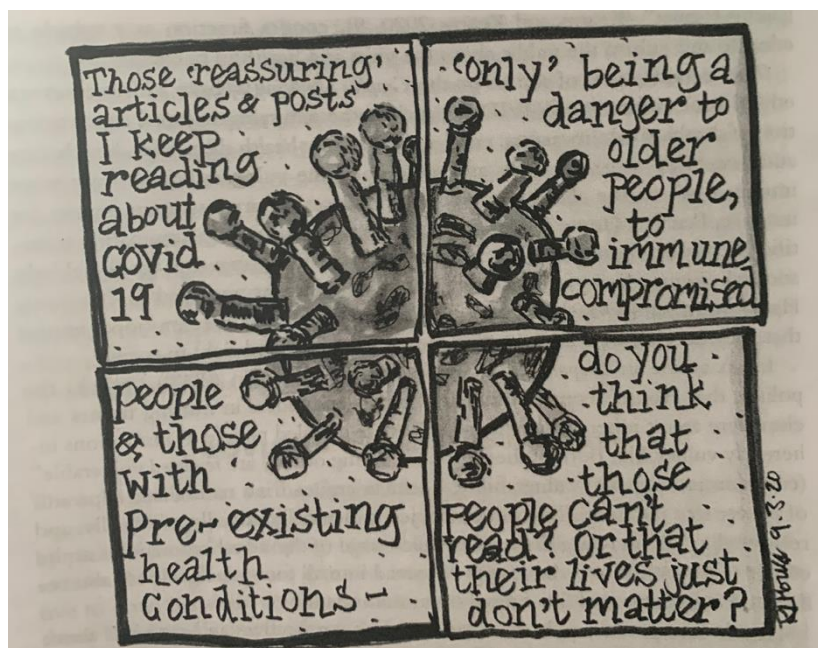 Those 'reassuring'
articles & posts
I keep
reading
about
Covid
19
'only' being a
danger to
older
people,
to
immune
compromised
people
& those
with
pre-existing
health
conditions -
do you
think
that
those
people can't
read? or that
their lives just
don't matter?
9.3.20